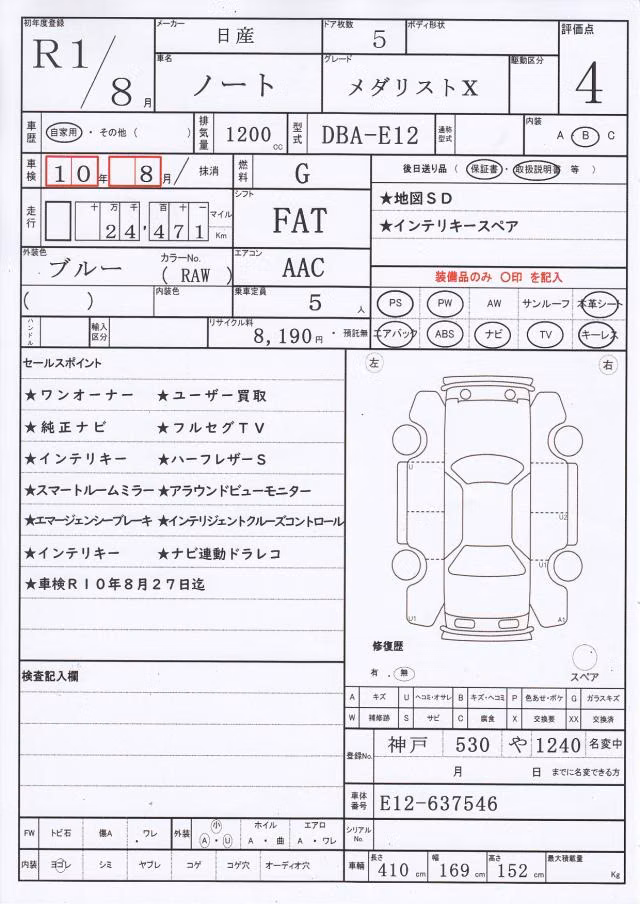 初年度登録 R1/8月 メーカー 日産 ドア枚数 5 ボディ形状 評価点 4
車名 ノート グレード メダリストX 駆動区分
車歴 自家用・その他( ) 排気量 1200cc 型式 DBA-E12 通称型式 内装 A・B C
車検 10年 8月/ 抹消 燃料 G 後日送り品( 保証書・取扱説明書 等 )
走行 十万千百十一 24,471 マイル Km シフト FAT ★地図SD
★インテリキースペア
外装色 ブルー カラーNo. ( RAW ) エアコン AAC 装備品のみ 〇印 を記入
( ) 内装色 乗車定員 5人 PS PW AW サンルーフ 本革シート
ハンドル 輸入区分 リサイクル料 8,190円・預託無 エアバック ABS ナビ TV キーレス
セールスポイント 左 右
★ワンオーナー ★ユーザー買取
★純正ナビ ★フルセグTV
★インテリキー ★ハーフレザーS
U
★スマートルームミラー★アラウンドビューモニター
★エマージェンシーブレーキ ★インテリジェントクルーズコントロール
U2
★インテリキー ★ナビ連動ドラレコ
U1
★車検R10年8月27日迄
U1 A1
修復歴
有 . 無 スペア
検査記入欄
A キズ U ヘコミ・オサレ B キズ・ヘコミ P 色あせ・ボケ G ガラスキズ
W 補修跡 S サビ C 腐食 X 交換要 XX 交換済
登録No. 神戸 530 や 1240 名変中
月 日 までに名変できる方
車体番号 E12-637546
FW トビ石 傷A ・ワレ 外装 小 A・U ホイル A・曲 エアロ A・ワレ シリアルNo.
内装 ヨゴレ シミ ヤブレ コゲ コゲ穴 オーディオ穴 車輌 長さ 410cm 幅 169cm 高さ 152cm 最大積載量 Kg